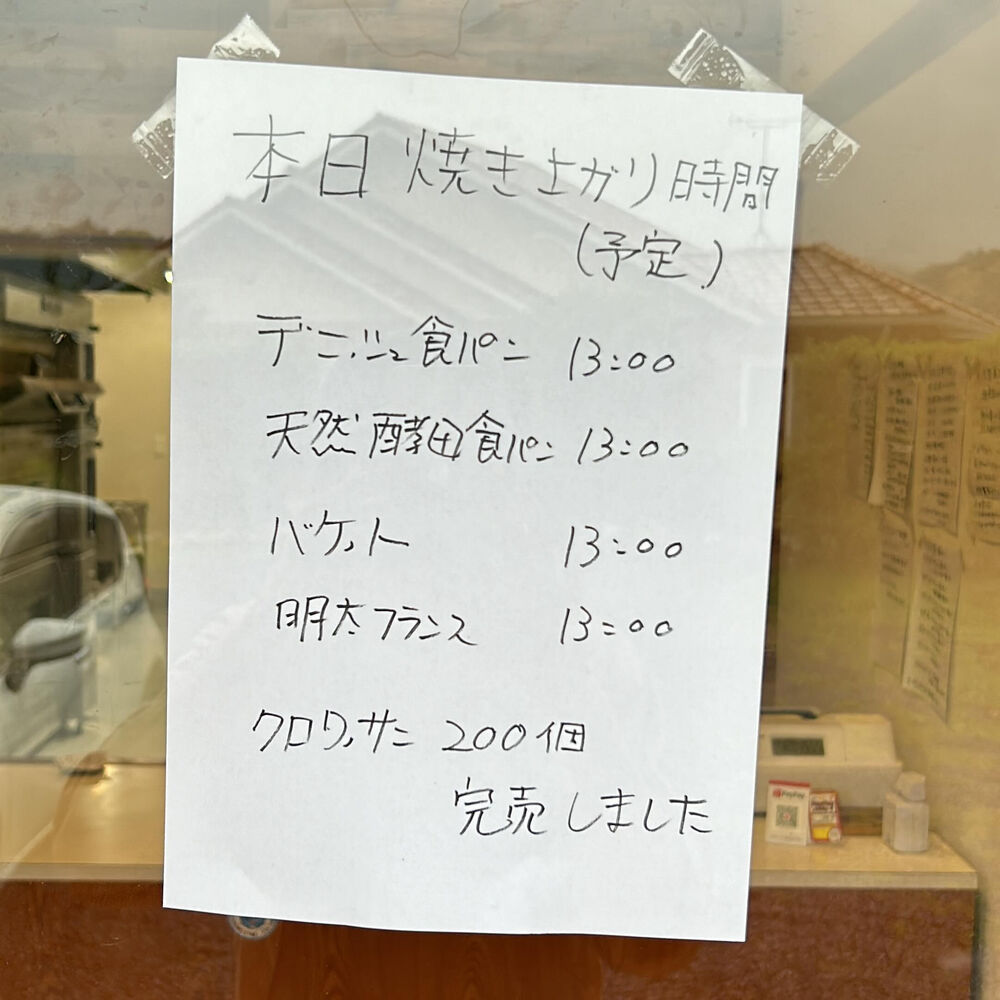 本日焼き上がり時間
(予定)
デニッシュ食パン 13:00
天然酵母食パン 13:00
バケット 13:00
明太フランス 13:00
クロワッサン 200個
完売しました
PayPay
PayPay